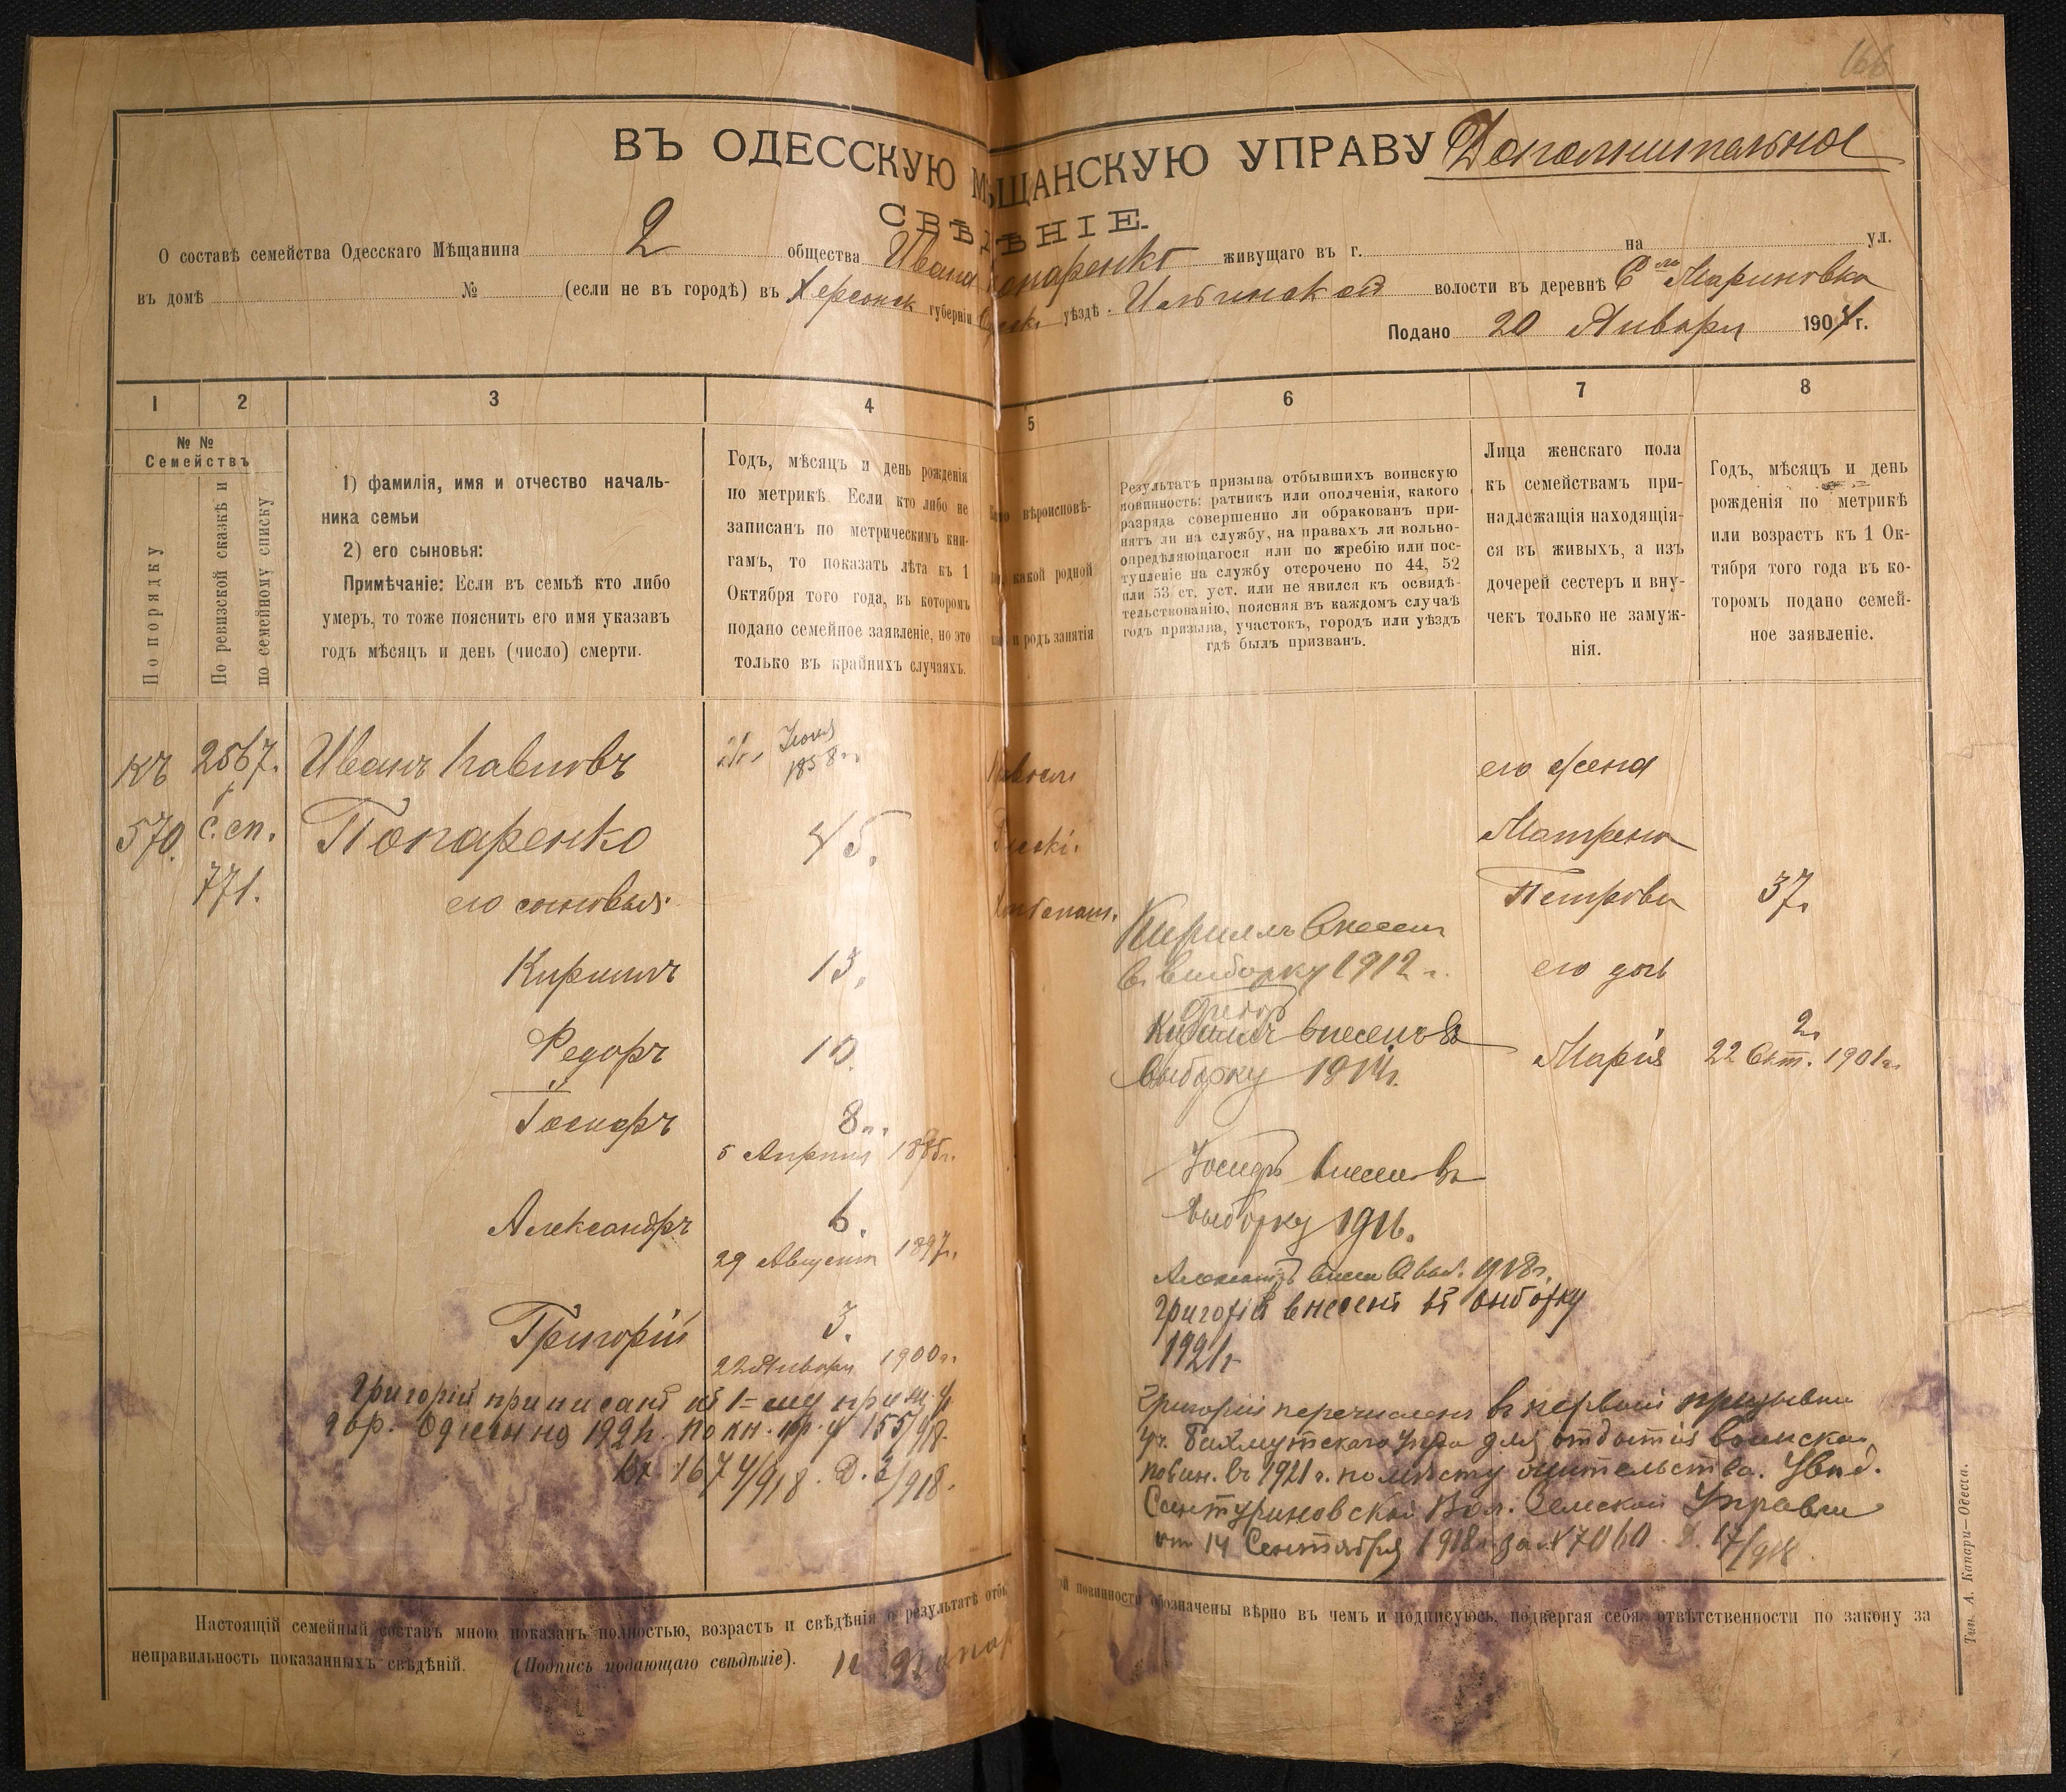 166
ВЪ ОДЕССКУЮ МѢЩАНСКУЮ УПРАВУ Дополнительное
СВѢДѢНІЕ.
О составѣ семейства Одесскаго Мѣщанина 2 общества Ивана Попаренко живущаго въ г. на ул.
въ домѣ № (если не въ городѣ) въ Херсонск губерніи уѣздѣ волости въ деревнѣ Марин​овка
Подано 20 Января 190 г.
1 2 3 4 5 6 7 8
№ №
Семействъ
По порядку
По ревизской сказкѣ и
по семейному списку
1) фамилія, имя и отчество началь-
ника семьи
2) его сыновья:
Примѣчаніе: Если въ семьѣ кто либо
умеръ, то тоже пояснить его имя указавъ
годъ мѣсяцъ и день (число) смерти.
Годъ, мѣсяцъ и день рожденія
по метрикѣ. Если кто либо не
записанъ по метрическимъ кни-
гамъ, то показать лѣта къ 1
Октября того года, въ которомъ
подано семейное заявленіе, но это
только въ крайнихъ случаяхъ.
вѣроисповѣ-
какой родной
и родъ занятія
Результатъ призыва отбывшихъ воинскую
повинность: ратникъ или ополченія, какого
разряда совершенно ли обракованъ при-
нятъ ли на службу, на правахъ ли вольно-
опредѣляющагося или по жребію или пос-
тупленіе на службу отсрочено по 44, 52
или 53 ст. уст. или не явился къ освидѣ-
тельствованію, поясняя въ каждомъ случаѣ
годъ призыва, участокъ, городъ или уѣздъ
гдѣ былъ призванъ.
Лица женскаго пола
къ семействамъ при-
надлежащія находящія-
ся въ живыхъ, а изъ
дочерей сестеръ и вну-
чекъ только не замуж-
нія.
Годъ, мѣсяцъ и день
рожденія по метрикѣ
или возрастъ къ 1 Ок-
тября того года въ ко-
торомъ подано семей-
ное заявленіе.
Къ 2567. Иванъ Павловъ Іюля 1858 г. его жена
570. с. сп. Попаренко 45. Матрена
771. его сыновья: Петрова 37.
Кириллъ внесен
Кириллъ 13. въ выборку 1912 г. его дочь
Федор
Федоръ 10. Кириллъ внесенъ въ 2.
выборку 1914 г. Марія 22 Окт. 1901 г.
Іосифъ 8 л.
5 Апрѣля Іосифъ внесен въ
выборку 1916.
Александръ 6.
29 Августа 1897 г.
Александръ внесен въ выб. 1918 г.
Григорій внесенъ въ выборку
1921 г
Григорій 3.
22 Января 1900 г.
Григорій приписанъ къ 1-му приз. у.
гор. Одессы на 1921 г. по кн. пр. у 155/918.
Вх. 1674/918. Д. 2/918.
Григорій перечислен в первый призывной
уч. Бахмутскаго уѣзда для отбытія воинской
повин. въ 1921 г. по мѣсту жительства. Увѣд.
Сантуриновской Вол. Земской Управы
от 14 Сентября 1918 г. за № 7060. Д. 17/918.
Настоящій семейный составъ мною показанъ полностью, возрастъ и свѣдѣнія о результатѣ отбы ой повинности обозначены вѣрно въ чемъ и подписуюсь, подвергая себя отвѣтственности по закону за
неправильность показанныхъ свѣдѣній. (Подпись подающаго свѣдѣніе).
Тип. А. Капари—Одесса.